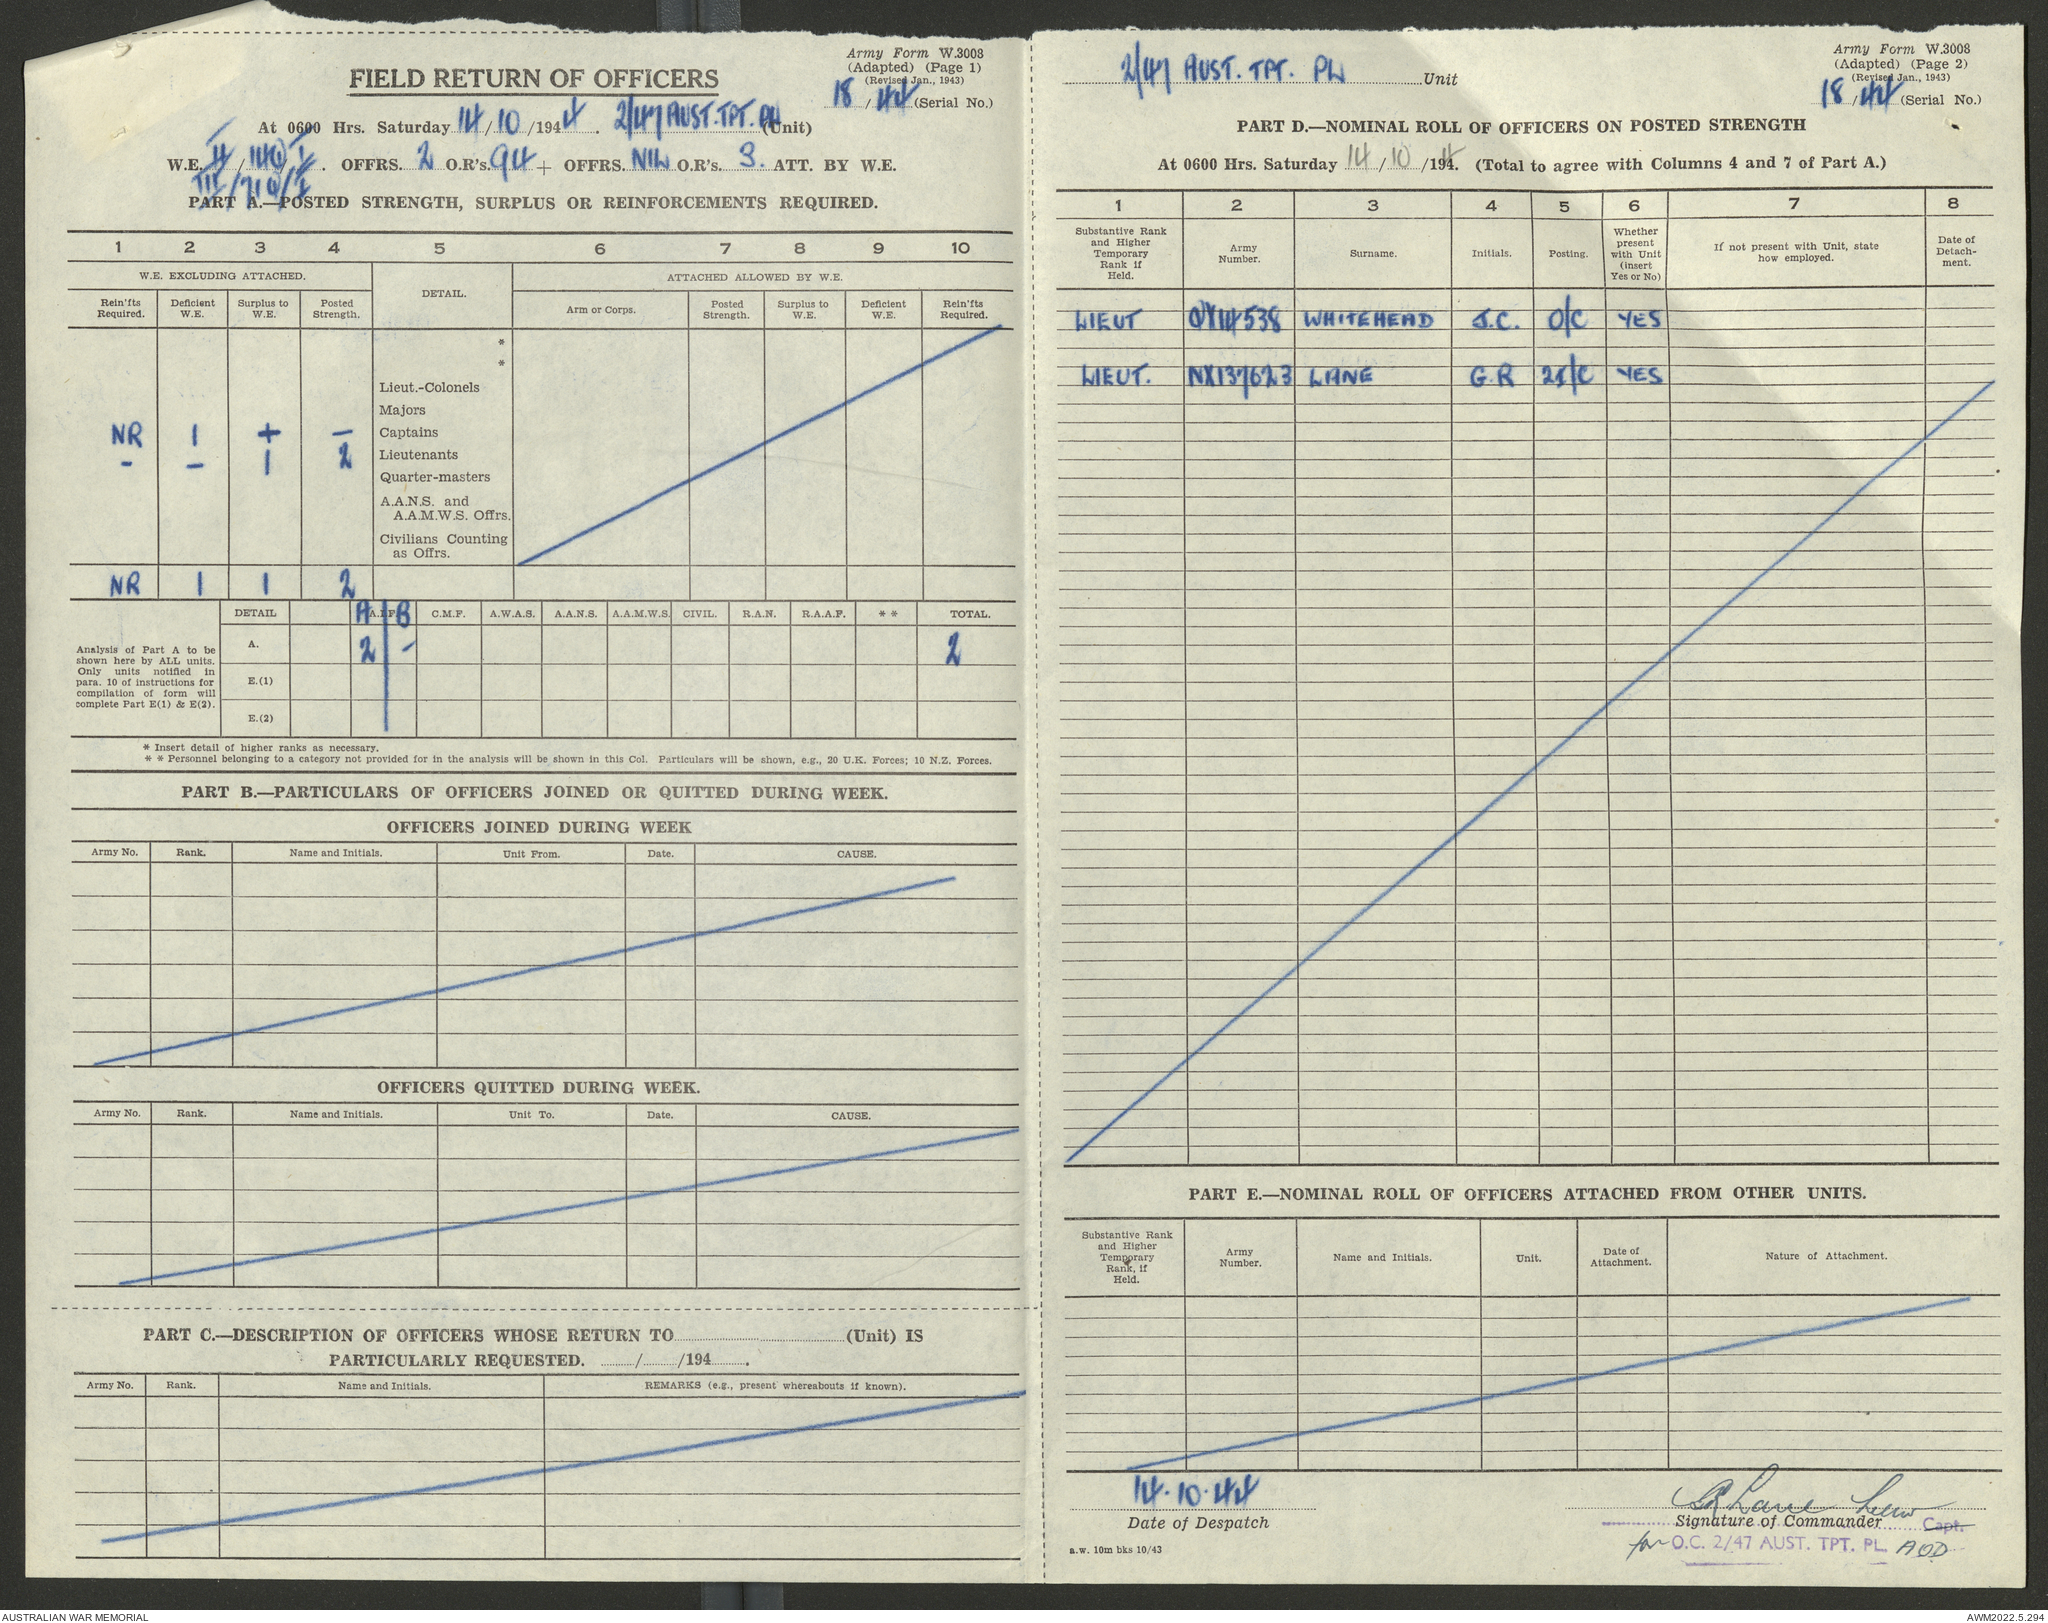 Army Form W.3008
(Adapted) (Page 1)
(Revised Jan., 1943)
18/44 (Serial No.)
FIELD RETURN OF OFFICERS
At 0600 Hrs. Saturday 14/10/1944. 2/47 AUST. TPT. PL (Unit)
W.E. II/ / . OFFRS. 2 O.R's. 94 + OFFRS. NIL O.R's. 3. ATT. BY W.E.
III/ /
PART A.—POSTED STRENGTH, SURPLUS OR REINFORCEMENTS REQUIRED.
1 2 3 4 5 6 7 8 9 10
W.E. EXCLUDING ATTACHED. DETAIL. ATTACHED ALLOWED BY W.E.
Rein'fts Required. Deficient W.E. Surplus to W.E. Posted Strength. Arm or Corps. Posted Strength. Surplus to W.E. Deficient W.E. Rein'fts Required.
*
*
Lieut.-Colonels
Majors
NR 1 + — Captains
- — 1 2 Lieutenants
Quarter-masters
A.A.N.S. and
A.A.M.W.S. Offrs.
Civilians Counting
as Offrs.
NR 1 1 2
DETAIL A.I.F. A B C.M.F. A.W.A.S. A.A.N.S. A.A.M.W.S. CIVIL. R.A.N. R.A.A.F. * * TOTAL.
A. 2 - 2
E.(1)
E.(2)
Analysis of Part A to be
shown here by ALL units.
Only units notified in
para. 10 of instructions for
compilation of form will
complete Part E(1) & E(2).
* Insert detail of higher ranks as necessary.
* * Personnel belonging to a category not provided for in the analysis will be shown in this Col. Particulars will be shown, e.g., 20 U.K. Forces; 10 N.Z. Forces.
PART B.—PARTICULARS OF OFFICERS JOINED OR QUITTED DURING WEEK.
OFFICERS JOINED DURING WEEK
Army No. Rank. Name and Initials. Unit From. Date. CAUSE.
OFFICERS QUITTED DURING WEEK.
Army No. Rank. Name and Initials. Unit To. Date. CAUSE.
PART C.—DESCRIPTION OF OFFICERS WHOSE RETURN TO (Unit) IS
PARTICULARLY REQUESTED. / /194 .
Army No. Rank. Name and Initials. REMARKS (e.g., present whereabouts if known).
2/47 AUST. TPT. PL Unit
Army Form W.3008
(Adapted) (Page 2)
(Revised Jan., 1943)
18/44 (Serial No.)
PART D.—NOMINAL ROLL OF OFFICERS ON POSTED STRENGTH
At 0600 Hrs. Saturday 14/10/1944. (Total to agree with Columns 4 and 7 of Part A.)
1 2 3 4 5 6 7 8
Substantive Rank and Higher Temporary Rank if Held. Army Number. Surname. Initials. Posting. Whether present with Unit (insert Yes or No) If not present with Unit, state how employed. Date of Detach-ment.
LIEUT QX14538 WHITEHEAD J.C. O/C YES
LIEUT. NX137623 LANE G.R 2I/C YES
PART E.—NOMINAL ROLL OF OFFICERS ATTACHED FROM OTHER UNITS.
Substantive Rank and Higher Temporary Rank, if Held. Army Number. Name and Initials. Unit. Date of Attachment. Nature of Attachment.
14.10.44
Date of Despatch
GR Lane Lieut
Signature of Commander Capt.
for O.C. 2/47 AUST. TPT. PL.
a.w. 10m bks 10/43
AUSTRALIAN WAR MEMORIAL
AWM2022.5.294